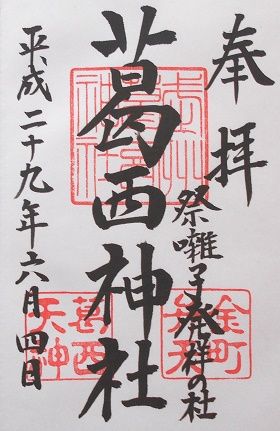 奉拝
祭囃子発祥の社
葛西神社
平成二十九年六月四日
葛西天神